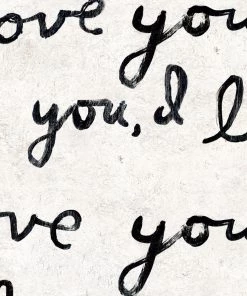 ove you
you, I l
ve you